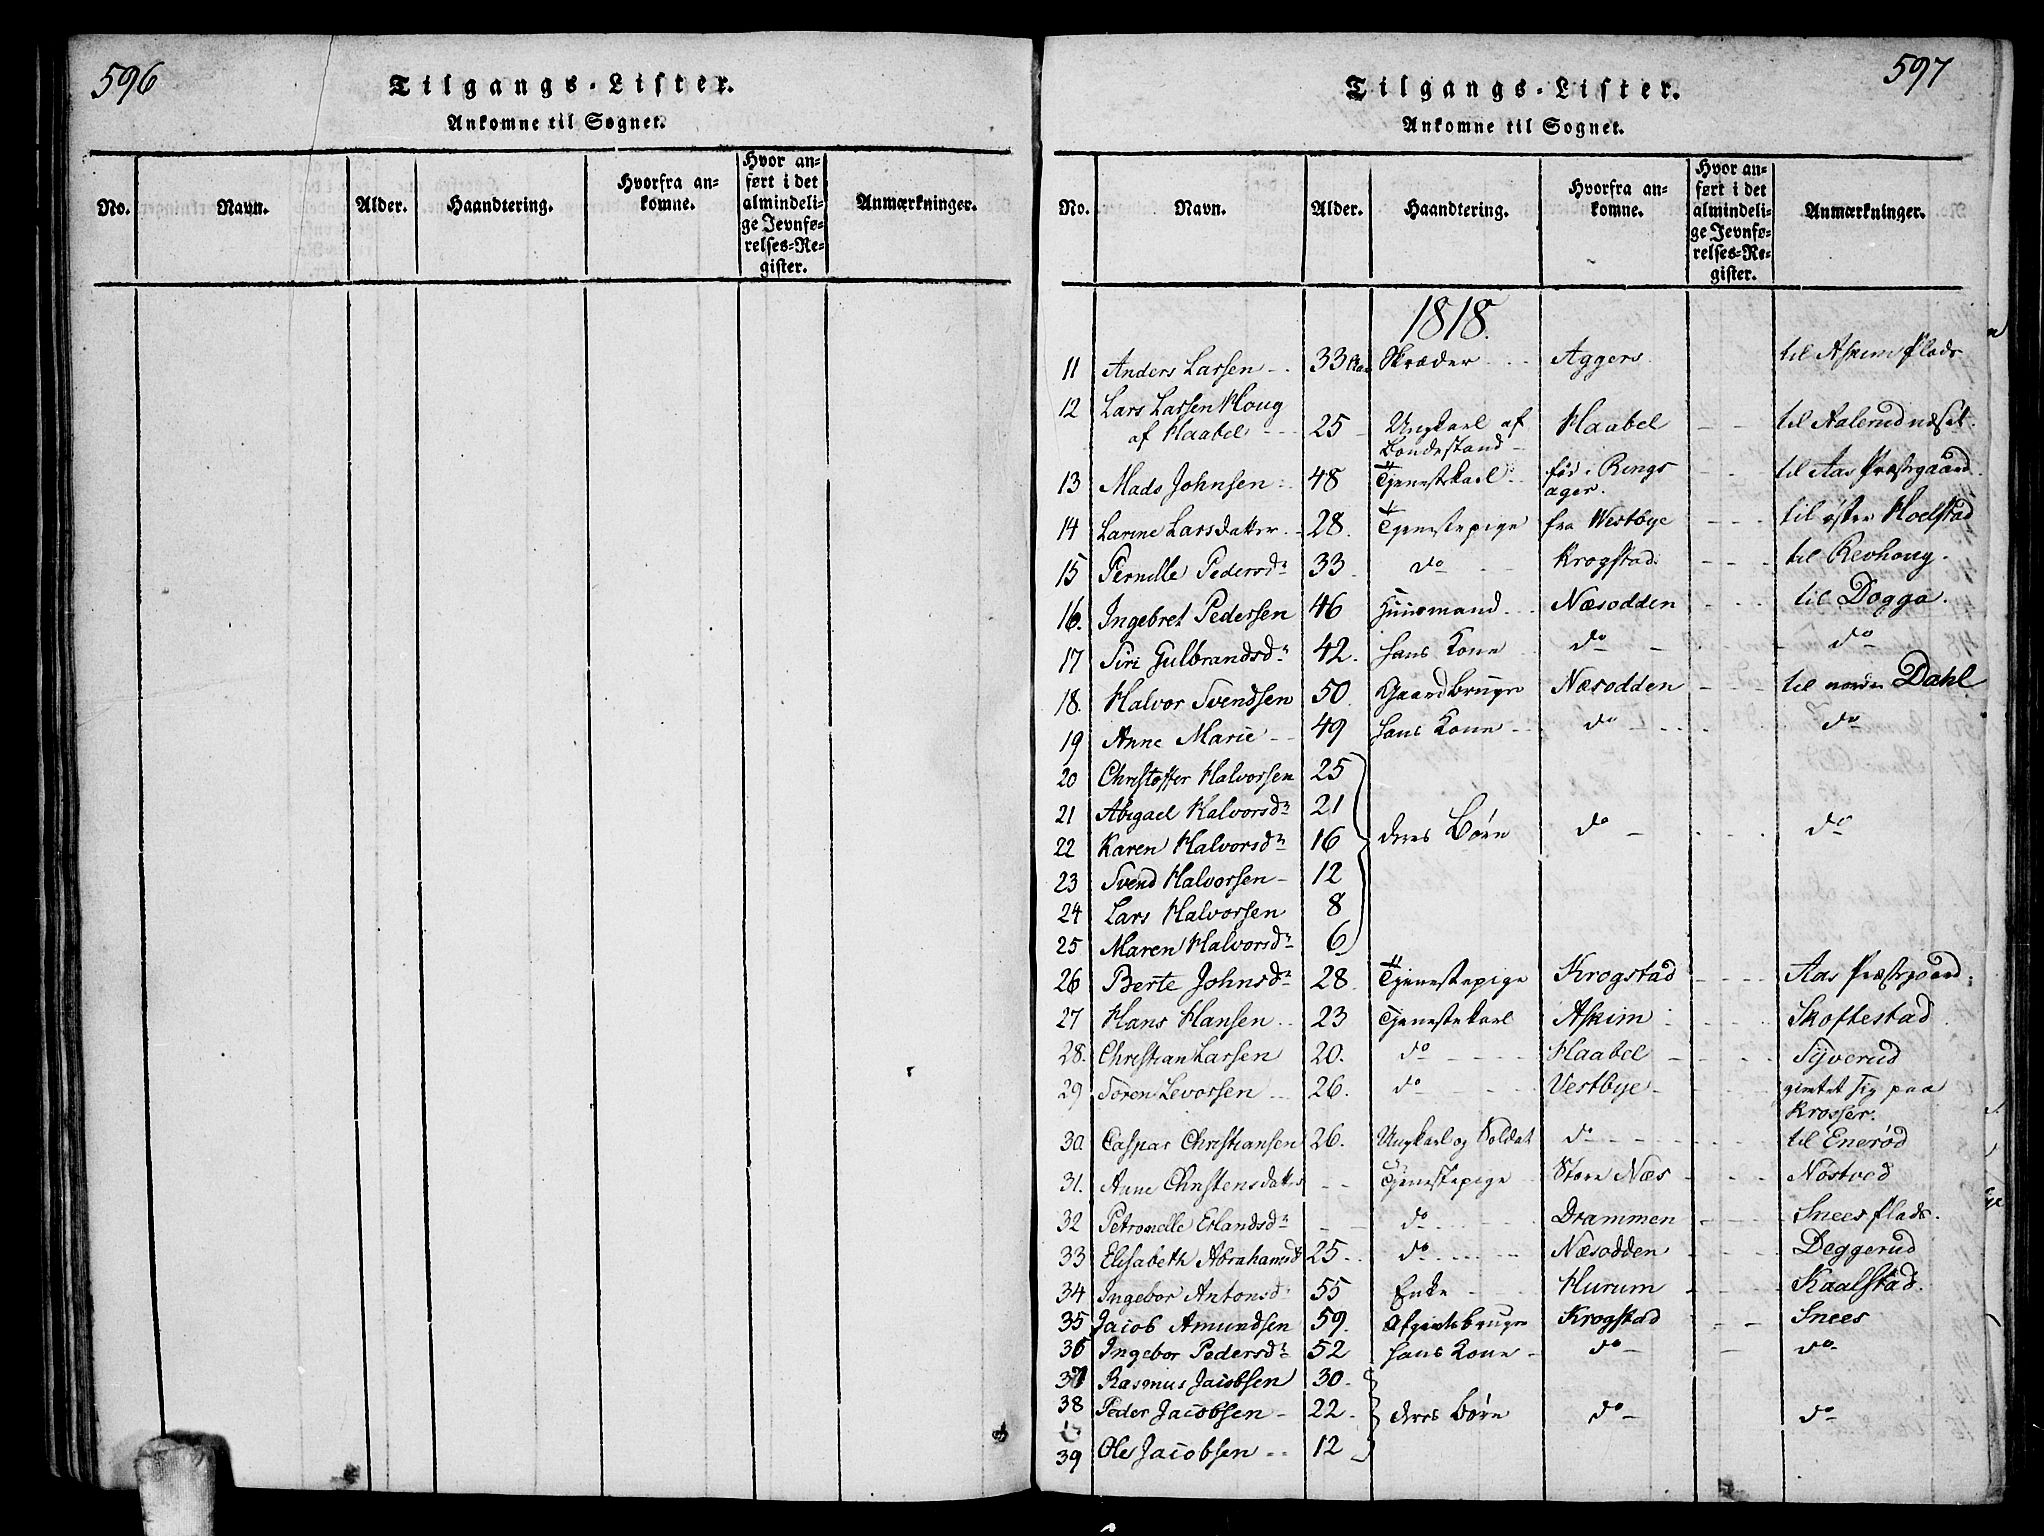 596
Tilgangs-Lister.
Ankomne til Sognet.
No. Navn. Alder. Haandtering. Hvorfra an-
komne. Hvor an-
ført i det
almindeli-
ge Jevnfø-
relses-Re-
gister. Anmærkninger.
597
Tilgangs-Lister.
Ankomne til Sognet.
No. Navn. Alder. Haandtering. Hvorfra an-
komne. Hvor an-
ført i det
almindeli-
ge Jevnfø-
relses-Re-
gister. Anmærkninger.
1818.
11 Anders Larsen 33 Skræder Aggers til Askim Plads
12 Lars Larsen Houg
af Haabel 25 Ungkarl af
Bondestand Haabel til Aalerudnæset.
13 Mads Johnsen 48 Tjenestekarl fød. Rings
ager. til Aas Præstgaard
14 Larine Larsdatter 28. Tjenestepige fra Westbye til øster Hoelstad
15 Pernille Pedersdr 33 do Krogstad til Revhoug.
16. Ingebret Pedersen 46 Huusmand Næsodden til Dogga.
17 Siri Gulbrandsdr 42. hans Kone do do
18. Halvor Svendsen 50. Gaardbruger Næsodden til nordre Dahl
19 Anne Marie 49 hans Kone do do
20 Christoffer Halvorsen 25
21 Abigael Halvorsdr 21
22 Karen Halvorsdr 16 deres Børn do do
23 Svend Halvorsen 12
24 Lars Halvorsen 8
25 Maren Halvorsdr 6
26 Berte Johnsdr 28. Tjenestepige Krogstad Aas Præstgaard
27 Hans Hansen 23 Tjenestekarl Askim Skoftestad
28. Christian Larsen 20. do Haabel Syverud
29 Søren Levorsen 26. do Vestbye giftet sig paa
Krosser.
30. Caspar Christiansen 26. Ungkarl og Soldat do til Enerød
31. Anne Christensdatter Tjenestepige Store Næs Nøstved
32 Petronelle Erlandsdr do Drammen Snees Plads.
33 Elisabeth Abrahamsd 25 do Næsodden Deggerud
34 Ingebor Antonsd 55 Enke Hurum Kaalstad.
35 Jacob Amundsen 59. Afgiftsbruger Krogstad Snees
36 Ingebor Pedersdr 52 hans Kone do do
37 Rasmus Jacobsen 30.
38 Peder Jacobsen 22. deres Børn do do
39 Ole Jacobsen 12